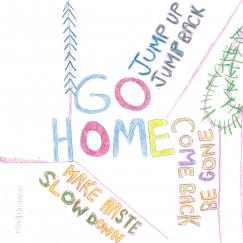 JUMP UP
JUMP BACK
GO
HOME
COME BACK
BE GONE
MAKE HASTE
SLOW DOWN